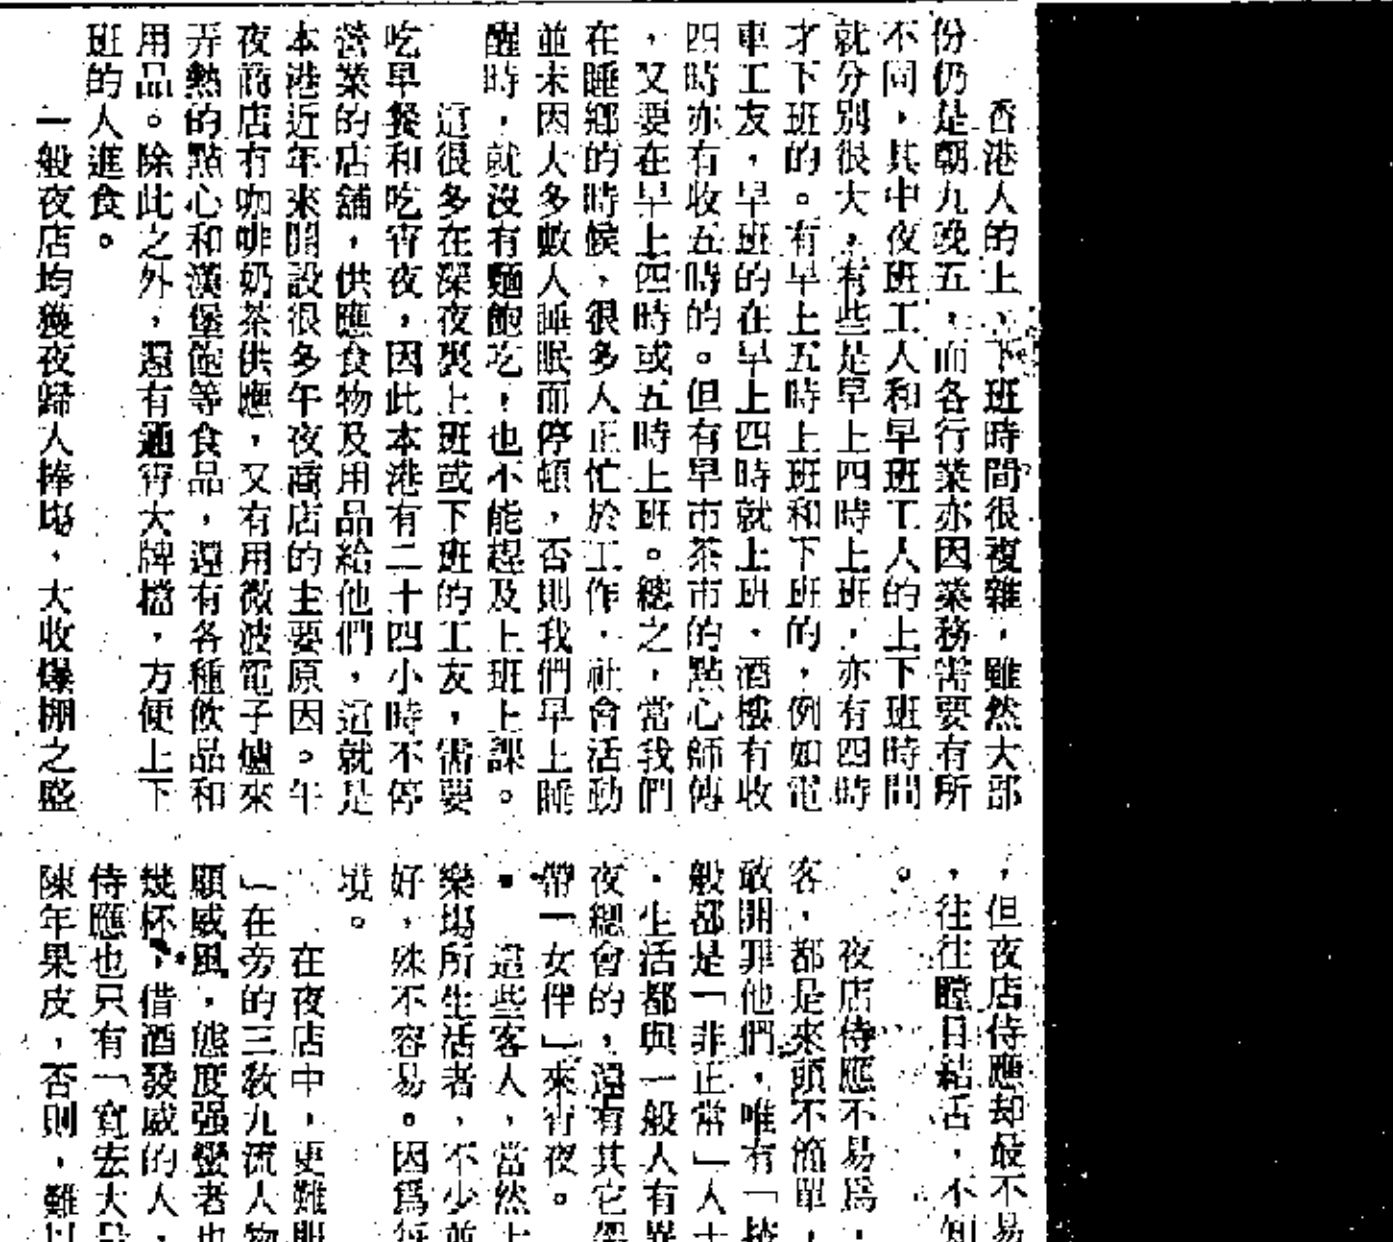 香港人的上、下班時間很複雜，雖然大部
份仍是朝九晚五，而各行業亦因業務需要有所
不同，其中夜班工人和早班工人的上下班時間
就分別很大，有些是早上四時上班，亦有四時
才下班的。有早上五時上班和下班的，例如電
車工友，早班的在早上四時就上班，酒樓有收
四時亦有收五時的。但有早市茶市的點心師傅
，又要在早上四時或五時上班。總之，當我們
在睡鄉的時候，很多人正忙於工作，社會活動
並未因大多數人睡眠而停頓，否則我們早上睡
醒時，就沒有麵飽吃，也不能趕及上班上課。
這很多在深夜裏上班或下班的工友，需要
吃早餐和吃宵夜，因此本港有二十四小時不停
營業的店舖，供應食物及用品給他們，這就是
本港近年來開設很多午夜商店的主要原因。午
夜商店有咖啡奶茶供應，又有用微波電子爐來
弄熱的點心和漢堡飽等食品，還有各種飲品和
用品。除此之外，還有通宵大牌檔，方便上下
班的人進食。
一般夜店均獲夜歸人捧場，大收爆棚之盛
，但夜店侍應却最不易
，往往瞠目結舌，不知
。
夜店侍應不易爲，
客，都是來頭不簡單，
敢開罪他們，唯有「
般都是「非正常」人士
，生活都與一般人有異
夜總會的，還有其它
帶一女伴」來宵夜。
這些客人，當然
樂場所生活者，不少
好，殊不容易。因爲
境。
在夜店中，更難
」在旁的三敎九流人物
顯威風，態度强蠻者也
幾杯，借酒發威的人，
侍應也只有「寬去大
陳年果皮，否則，難以